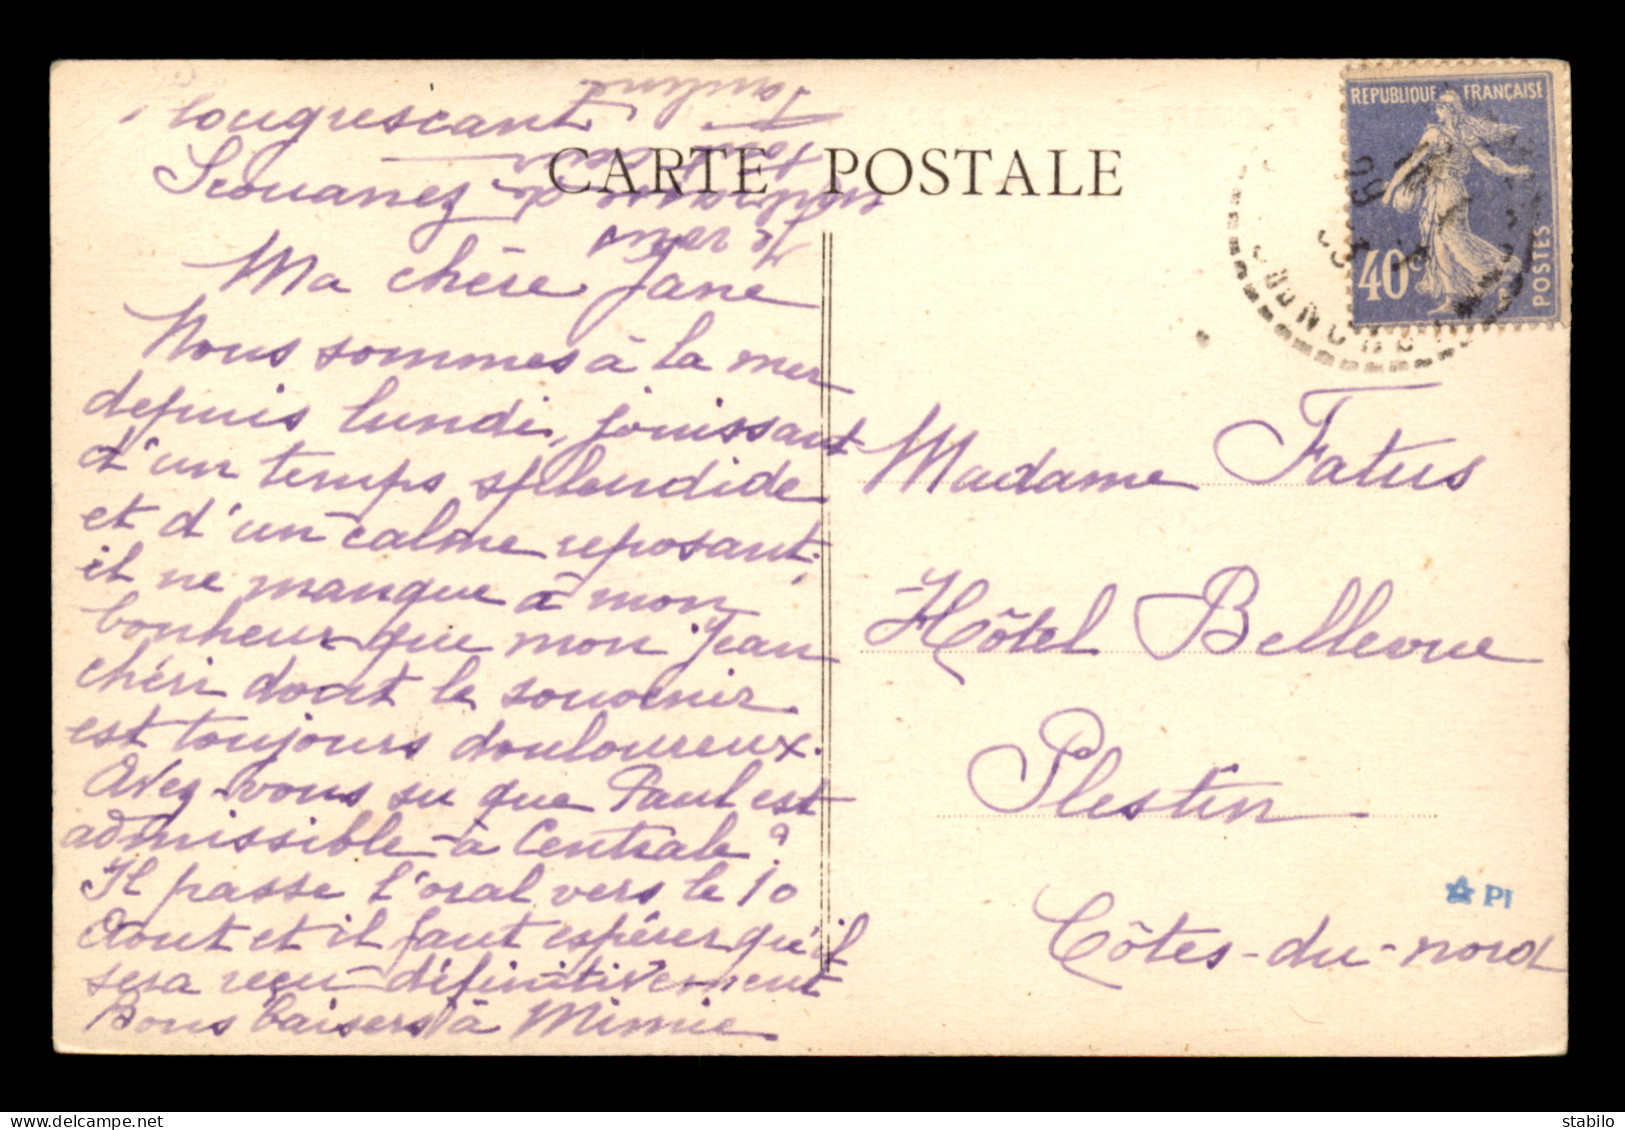 Plougrescant
CARTE POSTALE
Ma chère Jane
Nous sommes à la mer
depuis lundi, jouissant
d'un temps splendide
et d'un calme reposant;
il ne manque à mon
bonheur que mon Jean
chéri dont le souvenir
est toujours douloureux.
Avez-vous su que Paul est
admissible à Centrale?
Il passe l'oral vers le 10
Aout et il faut espérer qu'il
sera reçu définitivement
Bons baisers à Mimie
REPUBLIQUE FRANÇAISE
40c
POSTES
Madame Fatus
Hôtel Bellevue
Plestin
Côtes-du-nord
PI
delcampe.net stabilo